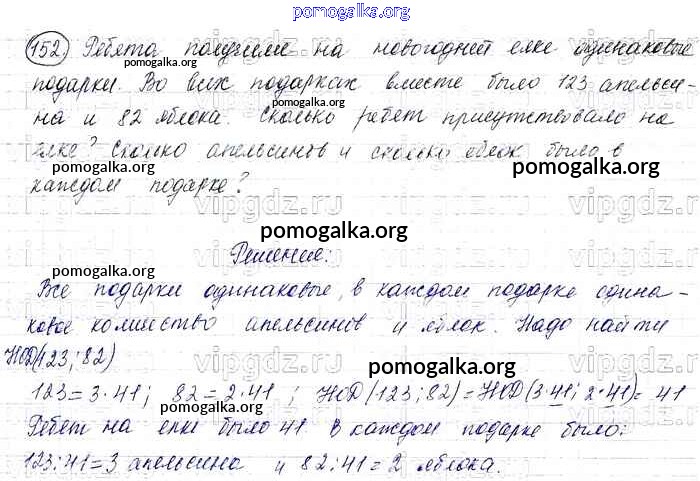 pomogalka.org
152. Ребята получили на новогодней елке одинаковые
pomogalka.org
подарки. Во всех подарках вместе было 123 апельси-
pomogalka.org
на и 82 яблока. Сколько ребят присутствовало на
pomogalka.org
елке? Сколько апельсинов и сколько яблок было в
pomogalka.org pomogalka.org
каждом подарке?
vipgdz.ru vipgdz.ru vipgdz.ru
pomogalka.org
Решение:
pomogalka.org
Все подарки одинаковые, в каждом подарке одина-
ковое количество апельсинов и яблок. Надо найти
pomogalka.org
НОД(123; 82)
vipgdz.ru vipgdz.ru vipgdz.ru
pomogalka.org
123=3·41; 82=2·41; НОД(123; 82)=НОД(3·41; 2·41)=41
pomogalka.org pomogalka.org
Ребят на елке было 41 В каждом подарке было:
123:41=3 апельсина и 82:41=2 яблока.